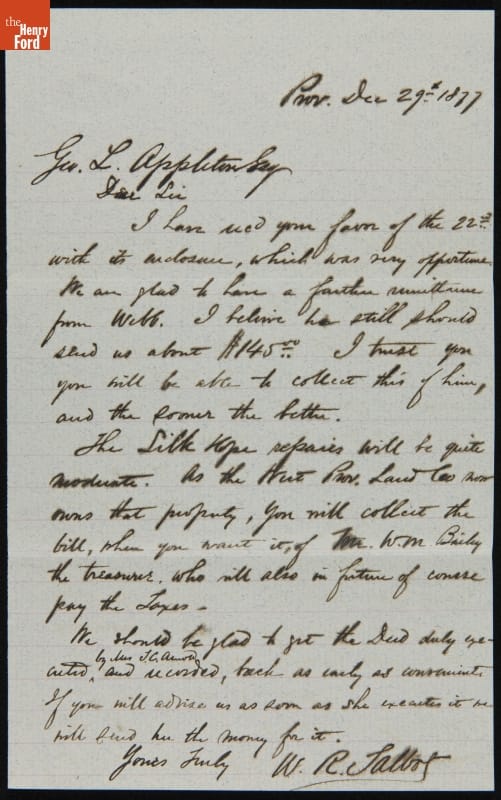 the
Henry
Ford
Prov. Dec 29th 1877
Geo. L. Appleton Esq
Dear Sir
I have recd your favor of the 22nd
with its enclosure, which was very opportune
We are glad to have a farther remittance
from Webb. I believe he still should
send us about $145.00 I trust you
you will be able to collect this of him,
and the sooner the better.
The Silk Hope repairs will be quite
moderate. As the West Prov. Land Co now
owns that property, you will collect the
bill, when you want it, of Mr. Wm Bailey
the treasurer. who will also in future of course
pay the Taxes.
We should be glad to get the Deed duly exe-
cuted, by Mrs T. G. Arnold and recorded, back as early as convenient
If you will advise us as soon as she executes it we
will send her the money for it.
Yours Truly W. R. Talbot